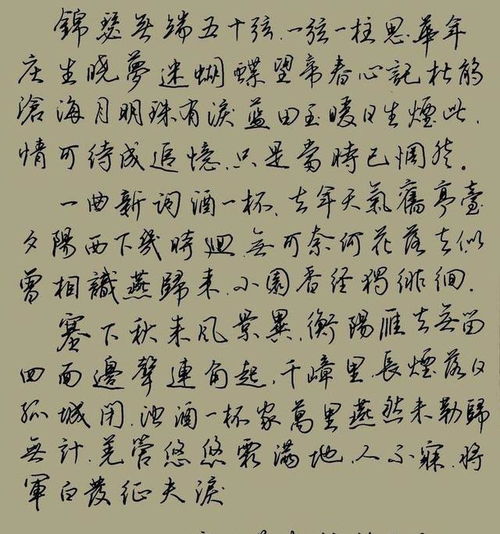 錦瑟無端五十弦.一弦一柱思華年
庄生曉夢迷蝴蝶望帝春心託杜鵑
滄海月明珠有淚藍田玉暖日生煙此
情可待成追憶.只是當時已惘然.
一曲新詞酒一杯.去年天氣舊亭臺
夕陽西下幾時迴.無可奈何花落去似
曾相識燕歸來.小園香径獨徘徊.
塞下秋来風景異.衡陽雁去無留
四面邊聲連角起.千嶂里.長煙落日
孤城閉.浊酒一杯家萬里燕然未勒歸
無計.羌管悠悠霜滿地.人不寐.將
軍白发征夫淚